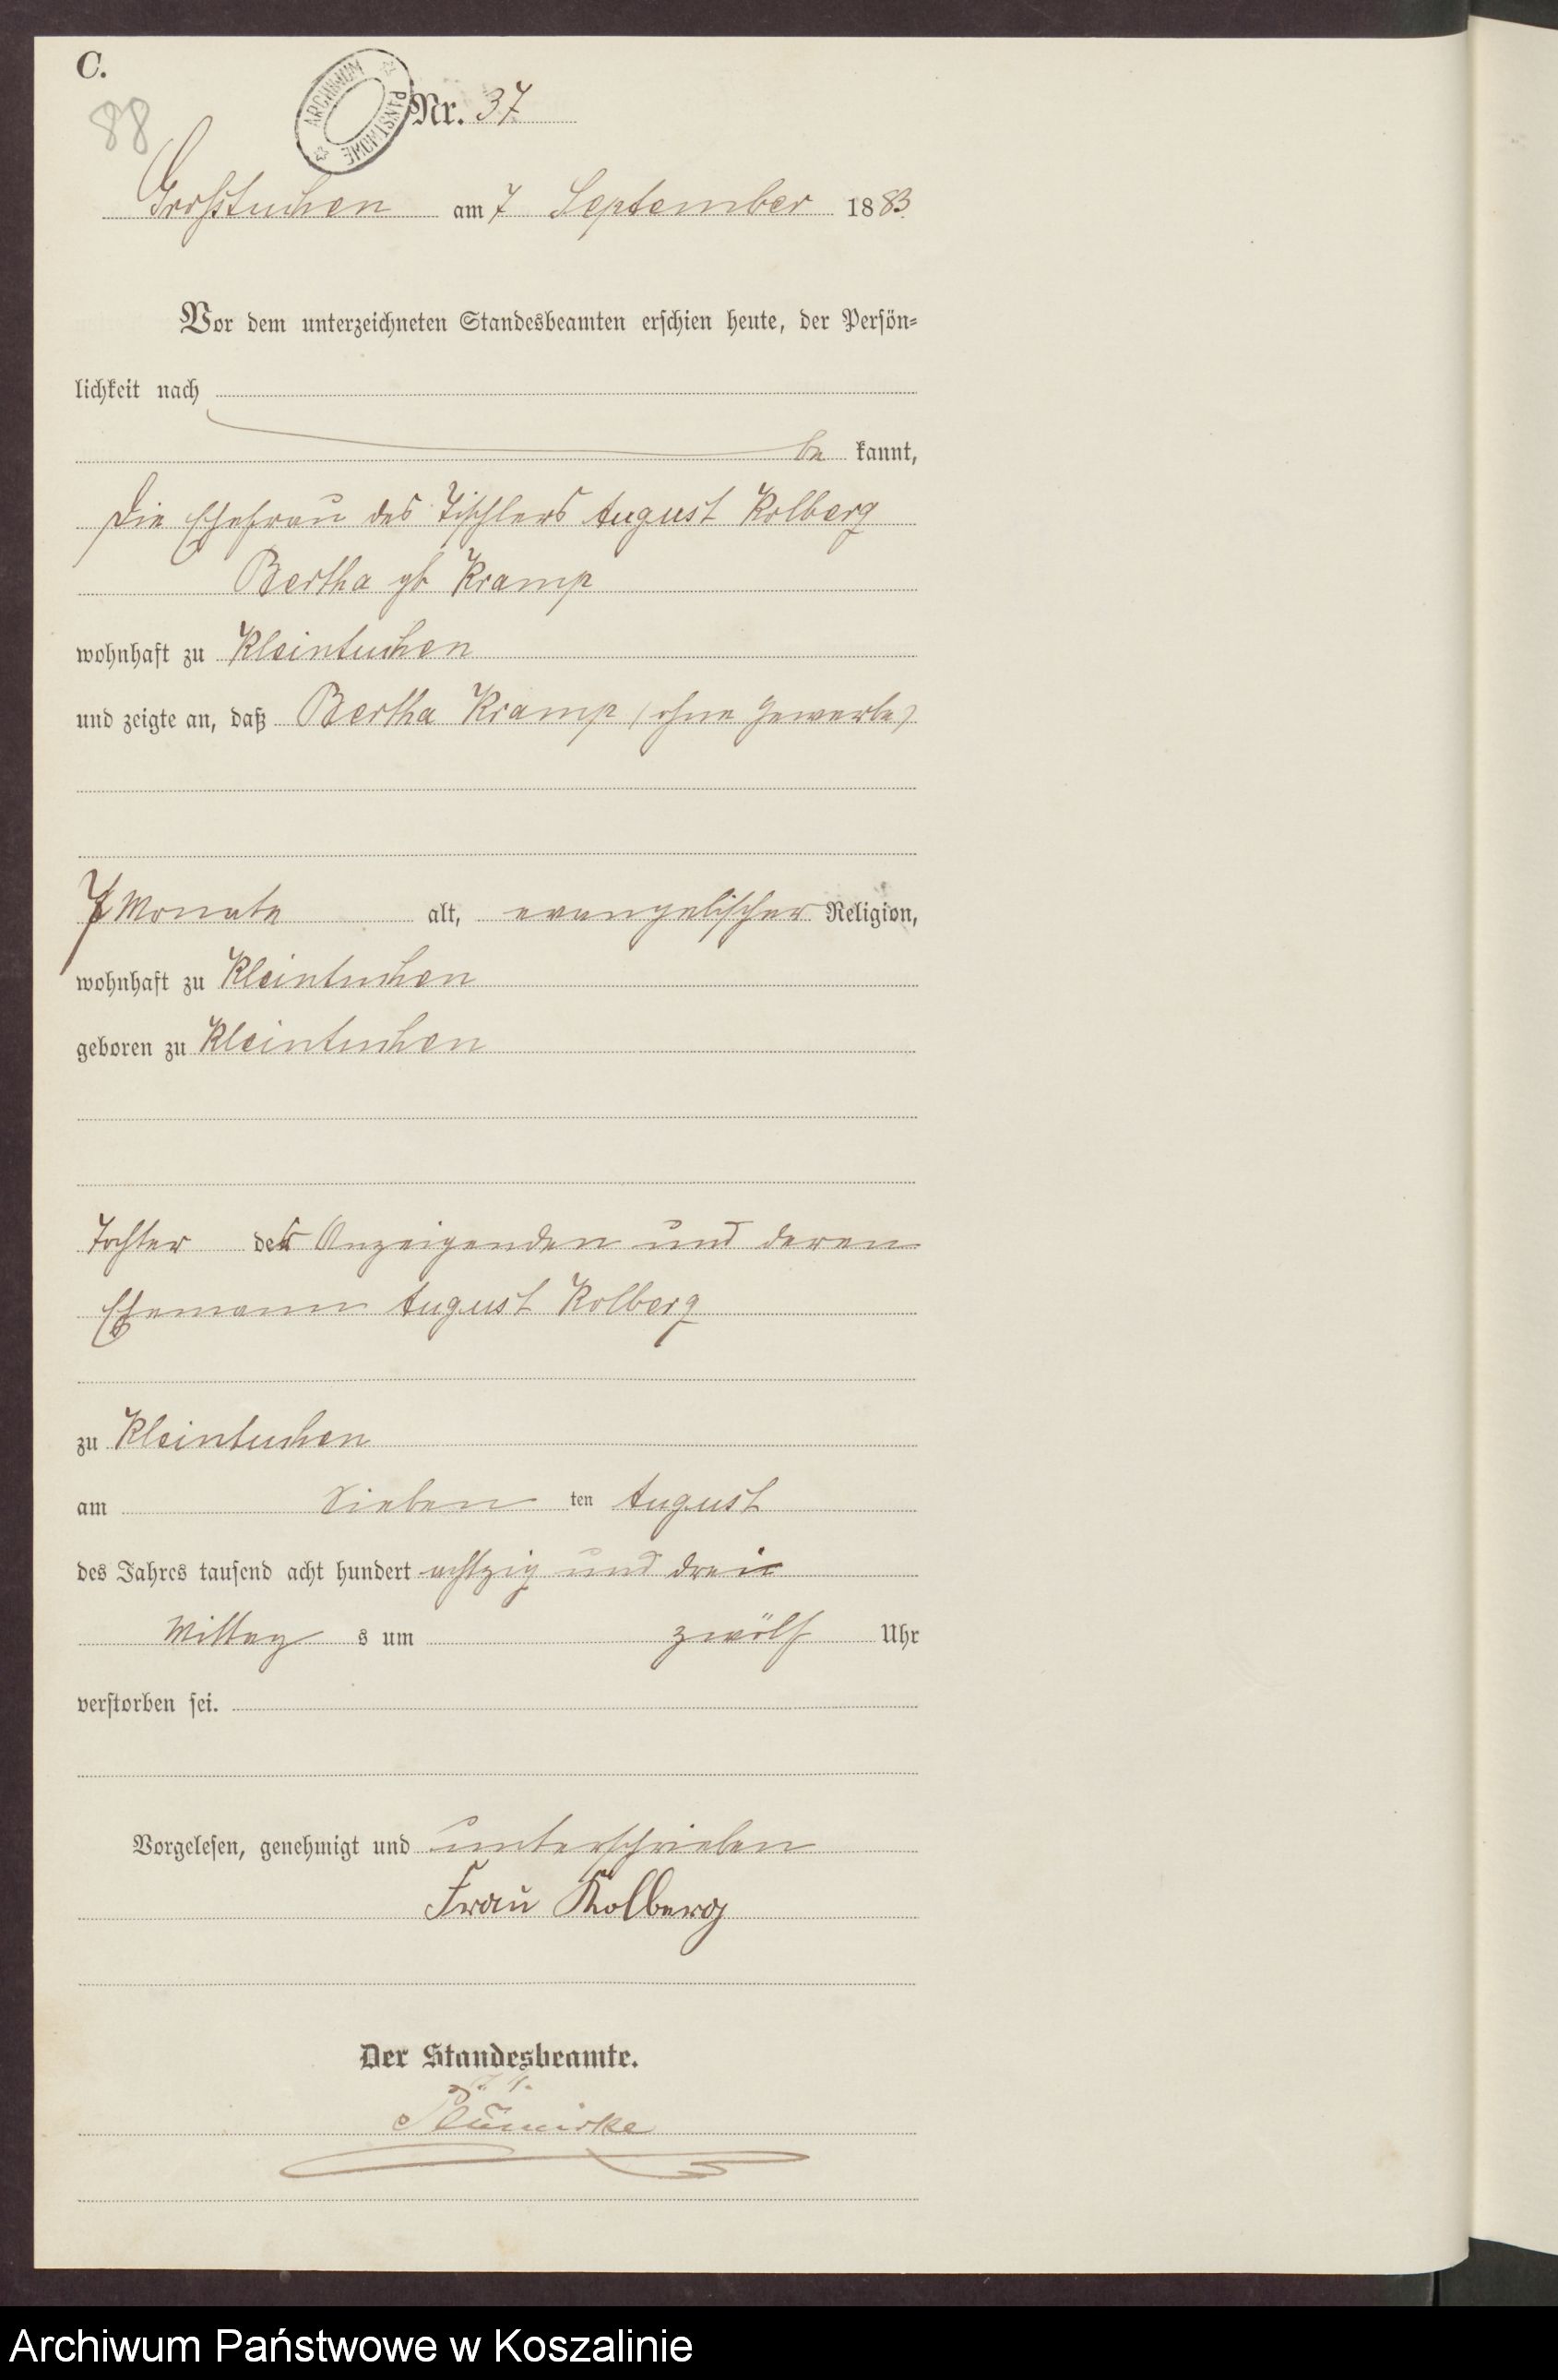 C.
88
ARCHIWUM PAŃSTWOWE
Nr. 37
Großtuchen am 7 September 1883.
Vor dem unterzeichneten Standesbeamten erschien heute, der Persön-
lichkeit nach
be kannt,
die Ehefrau des Tischlers August Kolberg
Bertha gb Kramp
wohnhaft zu Kleintuchen
und zeigte an, daß Bertha Kramp (ohne Gewerbe)
7 Monate alt, evangelischer Religion,
wohnhaft zu Kleintuchen
geboren zu Kleintuchen
Tochter der Anzeigenden und deren
Ehemann August Kolberg
zu Kleintuchen
am Sieben ten August
des Jahres tausend acht hundert achtzig und drei
Mittag s um zwölf Uhr
verstorben sei.
Vorgelesen, genehmigt und unterschrieben
Frau Kolberg
Der Standesbeamte.
Archiwum Państwowe w Koszalinie